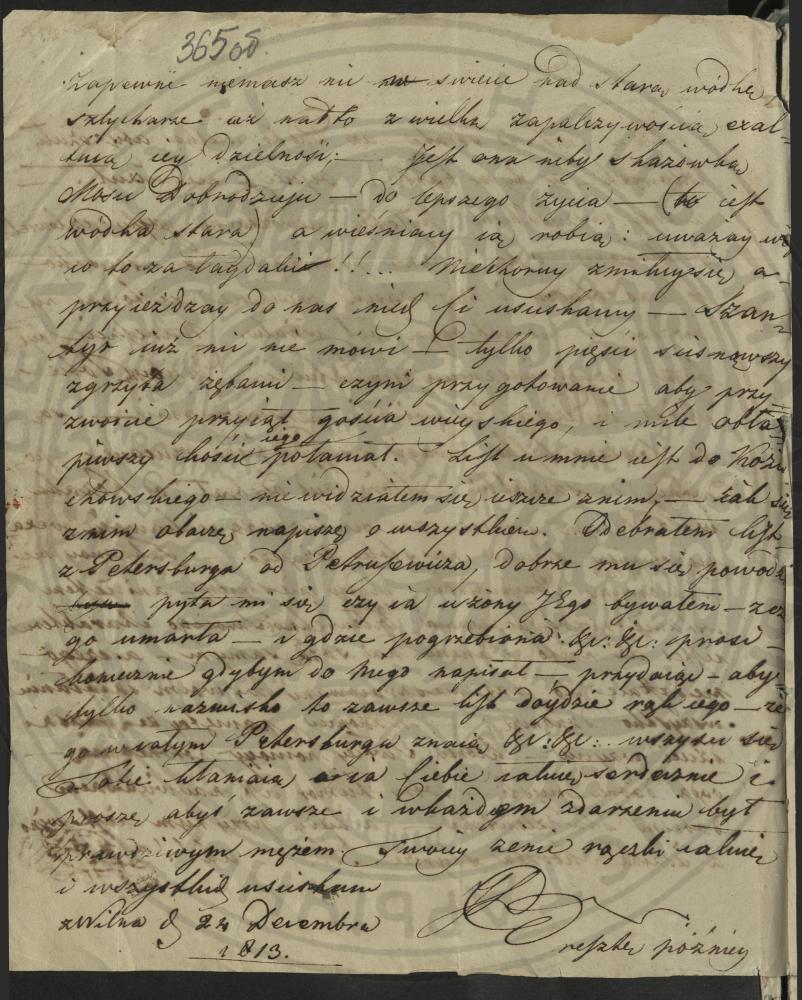 365 os
Zapewne niemasz nic na swiecie nad starą wódkę,
sztycharze aż nadto z wielką zapalczywością exal-
tuią iey dzielność; — Jest ona niby skazówką
Mosci Dobrodzieju — do lepszego życia — (to iest
wódka stara) a wieśniacy ią robią: uważay
co to za !!... zmiłuy się a
przyieżdzay do nas niech Ci usciskamy — Szan-
tyr iuż nic nie mówi — tylko pięści scisnąwszy
zgrzyta zębami — czyni przygotowanie aby przy-
zwoicie przyiąć gościa wieyskiego, i mile obła-
piwszy kości iego połamał. List u mnie iest do Kozu-
chowskiego — nie widziałem się ieszcze z nim, — iak się
z nim obaczę napiszę o wszystkiem. Odebrałem list
z Petersburga od Petrusewicza, dobrze mu się powodzi
pyta mi się czy ia u żony Jego bywałem — z cze-
go umarła — i gdzie pogrzebiona: &c: &c: prosi
koniecznie gdybym do niego napisał — przydaiąc — aby
tylko nazwisko to zawsze list doydzie rąk iego — że
go w całym Petersburgu znaią &c: &c: wszyscy się
Tobie kłaniaią a ia Ciebie całuię serdecznie i
proszę abyś zawsze i w każdym zdarzeniu był
prawdziwym mężem. Twoiey żenie rączki całuię
i wszystkich usciskam
z Wilna d 24 Decembra
1813.
resztę pózniey